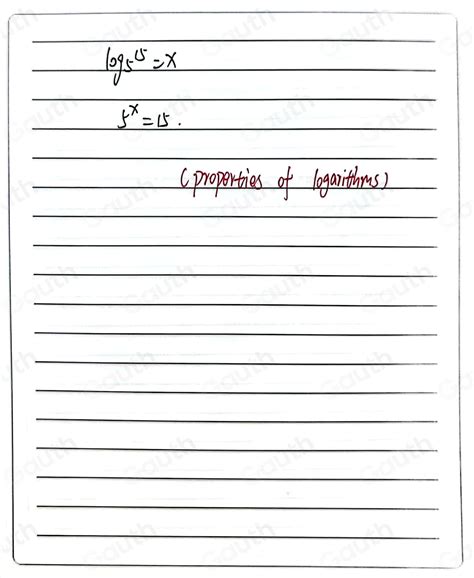 log₅15 = x
5ˣ = 15.
(properties of logarithms)